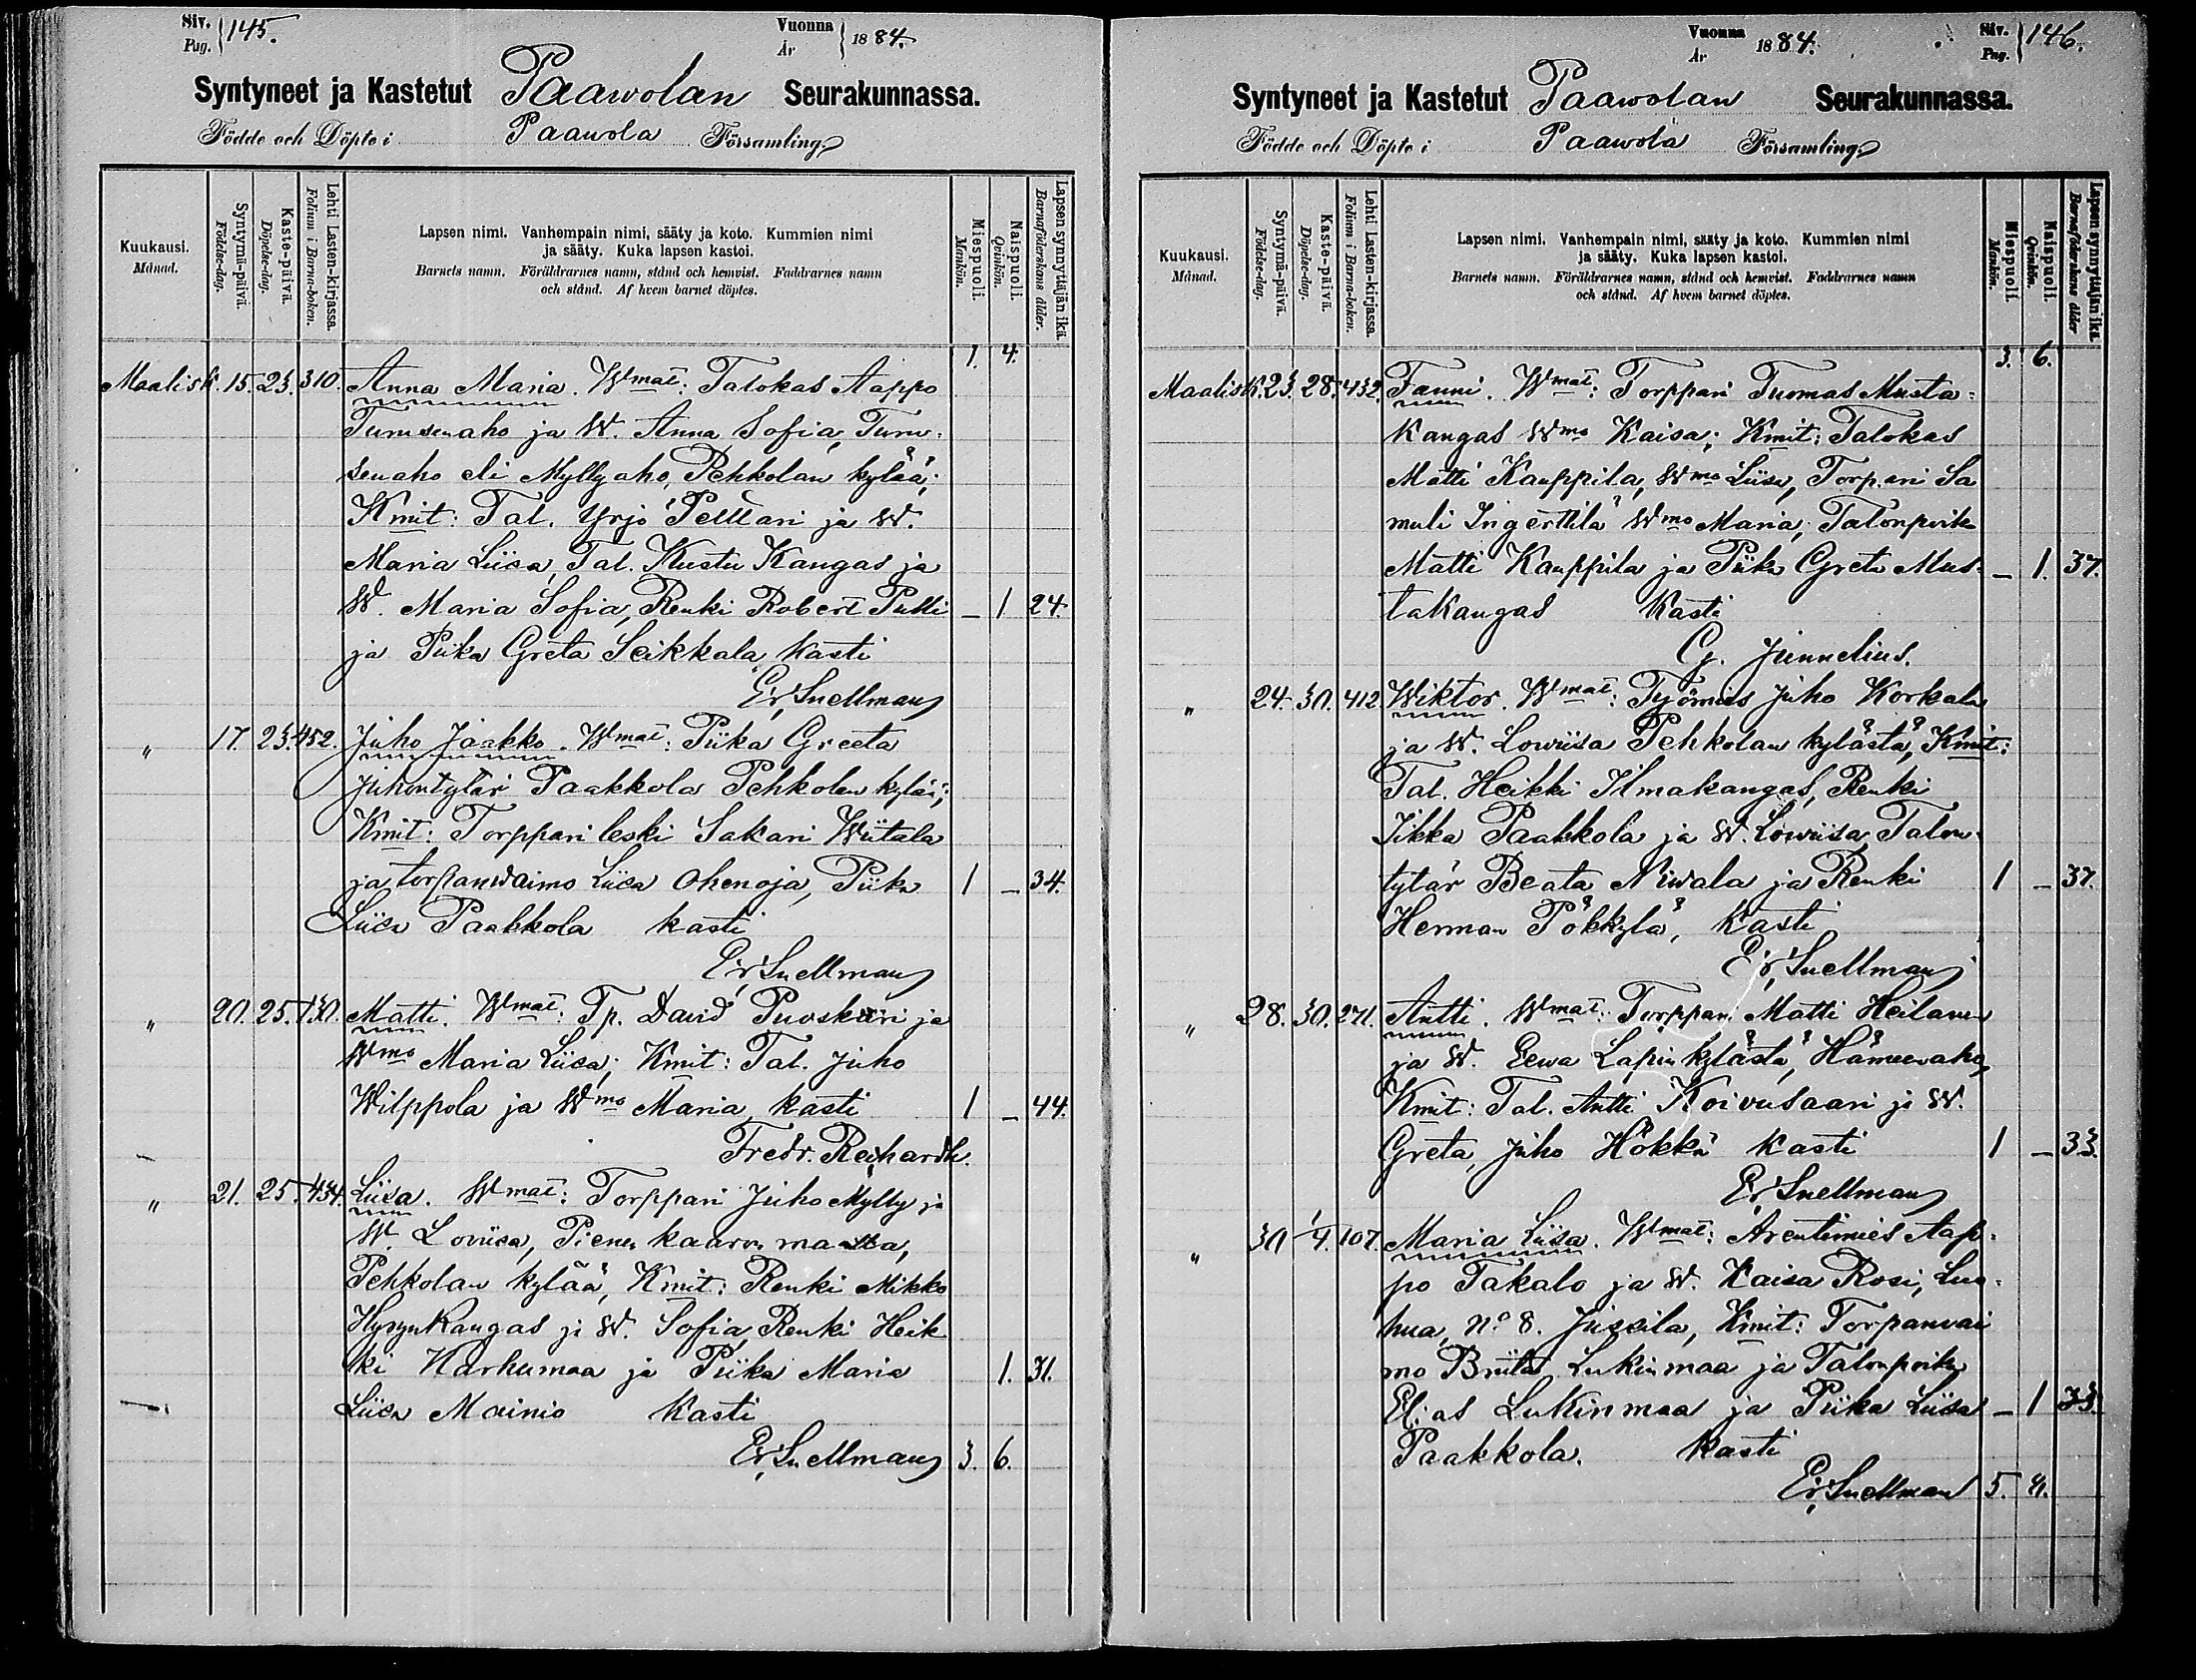 Siv. Pag. 145. Vuonna År 1884.
Syntyneet ja Kastetut Paawolan Seurakunnassa.
Födde och Döpte i Paawola Församling
Kuukausi. Månad.
Syntymä-päivä. Födelse-dag.
Kaste-päivä. Döpelse-dag.
Lehti Lasten-kirjassa. Folium i Barna-boken.
Lapsen nimi. Vanhempain nimi, sääty ja koto. Kummien nimi
ja sääty. Kuka lapsen kastoi.
Barnets namn. Föräldrarnes namn, stånd och hemvist. Faddrarnes namn
och stånd. Af hvem barnet döptes.
Miespuoli. Mankön.
Naispuoli. Qvinkön.
Lapsen synnyttäjän ikä. Barnaföderskans ålder.
1. 4.
Maalisk. 15. 23. 310. Anna Maria. Wmat: Talokas Aappo
Turusenaho ja W. Anna Sofia, Turu-
senaho eli Myllyaho, Pehkolan kylää;
Kmit: Tal. Yrjö Pelttari ja W.
Maria Liisa, Tal. Kustu Kangas ja
W. Maria Sofia, Renki Robert Pulli – 1 24.
ja Piika Greta Seikkala, kasti
Er. Snellman
" 17. 23. 452. Juho Jaakko. Wmat: Piika Greeta
Juhontytär Paakkola Pehkolan kylää;
Kmit: Torpparileski Sakari Wiitala
ja torpanwaimo Liisa Ohenoja, Piika 1 – 34.
Liisa Paakkola kasti
Er. Snellman
" 20. 25. 130. Matti. Wmat: Tp. David Puoskari ja
Wmo Maria Liisa; Kmit: Tal. Juho
Wilppola ja Wmo Maria kasti 1 – 44.
Fredr. Reinhardh.
" 21. 25. 434. Liisa. Wmat: Torppari Juho Mylly ja
W. Loviisa, Pienenkaaronmaalta,
Pehkolan kylää, Kmit: Renki Mikko
Hyrynkangas ja W. Sofia, Renki Heik
ki Karhumaa ja Piika Maria 1. 31.
Liisa Mainio kasti
Er. Snellman 3. 6.
Vuonna År 1884. Siv. Pag. 146.
Syntyneet ja Kastetut Paawolan Seurakunnassa.
Födde och Döpte i Paawola Församling
Kuukausi. Månad.
Syntymä-päivä. Födelse-dag.
Kaste-päivä. Döpelse-dag.
Lehti Lasten-kirjassa. Folium i Barna-boken.
Lapsen nimi. Vanhempain nimi, sääty ja koto. Kummien nimi
ja sääty. Kuka lapsen kastoi.
Barnets namn. Föräldrarnes namn, stånd och hemvist. Faddrarnes namn
och stånd. Af hvem barnet döptes.
Miespuoli. Mankön.
Naispuoli. Qvinkön.
Lapsen synnyttäjän ikä. Barnaföderskans ålder
3. 6.
Maalisk. 23. 28. 432. Fanni. Wmat: Torppari Tuomas Musta-
kangas Wmo Kaisa; Kmit: Talokas
Matti Kauppila, Wmo Liisa, Torppari Sa
muli Ingerttilä Wmo Maria; Talonpoika
Matti Kauppila ja Piika Greta Mus- – 1. 37.
takangas kasti
G. Junnelius.
" 24. 30. 412 Wiktor. Wmat: Työmies Juho Korkala
ja W. Lowiisa Pehkolan kylästä, Kmit:
Tal. Heikki Ilmakangas, Renki
Iikka Paakkola ja W. Lowiisa, Talon-
tytär Beata Niwala ja Renki 1 – 37.
Herman Pökkylä, kasti
Er. Snellman
" 28. 30. 271. Antti. Wmat: Torppari Matti Heilanen
ja W. Eewa Lapinkylästä, Hämeenaho,
Kmit: Tal. Antti Koivusaari ja W.
Greta, Juho Hökkä kasti 1 – 33.
Er. Snellman
" 30 1/4. 107. Maria Liisa. Wmat: Arentimies Aap-
po Takalo ja W. Kaisa Rosi, Luo-
hua, No 8. Jussila, Kmit: Torpanvai
mo Briita Lukinmaa ja Talonpoika
Elias Lukinmaa ja Piika Liisa – 1 33.
Paakkola. kasti
Er. Snellman 5. 8.